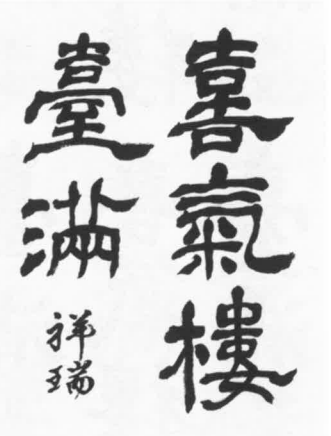 喜氣樓
臺滿
祥瑞